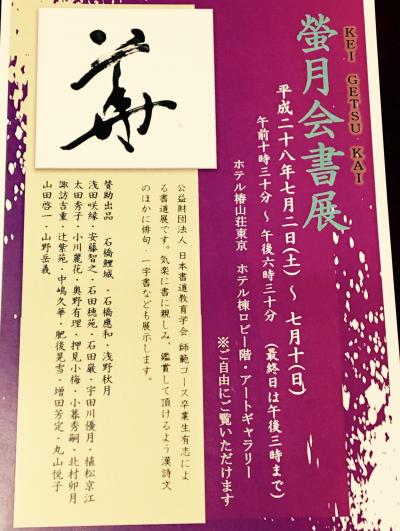 KEI GETSU KAI
螢月会書展
平成二十八年七月二日(土) ～ 七月十日(日)
午前十時三十分 ～ 午後六時三十分 (最終日は午後三時まで)
ホテル椿山荘東京 ホテル棟ロビー階・アートギャラリー
※ご自由にご覧いただけます
公益財団法人 日本書道教育学会 師範コース卒業生有志によ
る書道展です。気楽に書に親しみ、鑑賞して頂けるよう漢詩文
のほかに俳句、一字書なども展示します。
賛助出品 石橋鯉城・石橋應和・浅野秋月
浅田咲縁・安藤智之・石田穂苑・石田巌・宇田川優月・植松京江
太田秀子・小川麗花・奥野有理・押見小梅・小暮秀嗣・北村卯月
諏訪吉重・辻紫苑・中嶋久華・肥後晃雪・増田芳定・丸山悦子
山田啓一・山野岳義